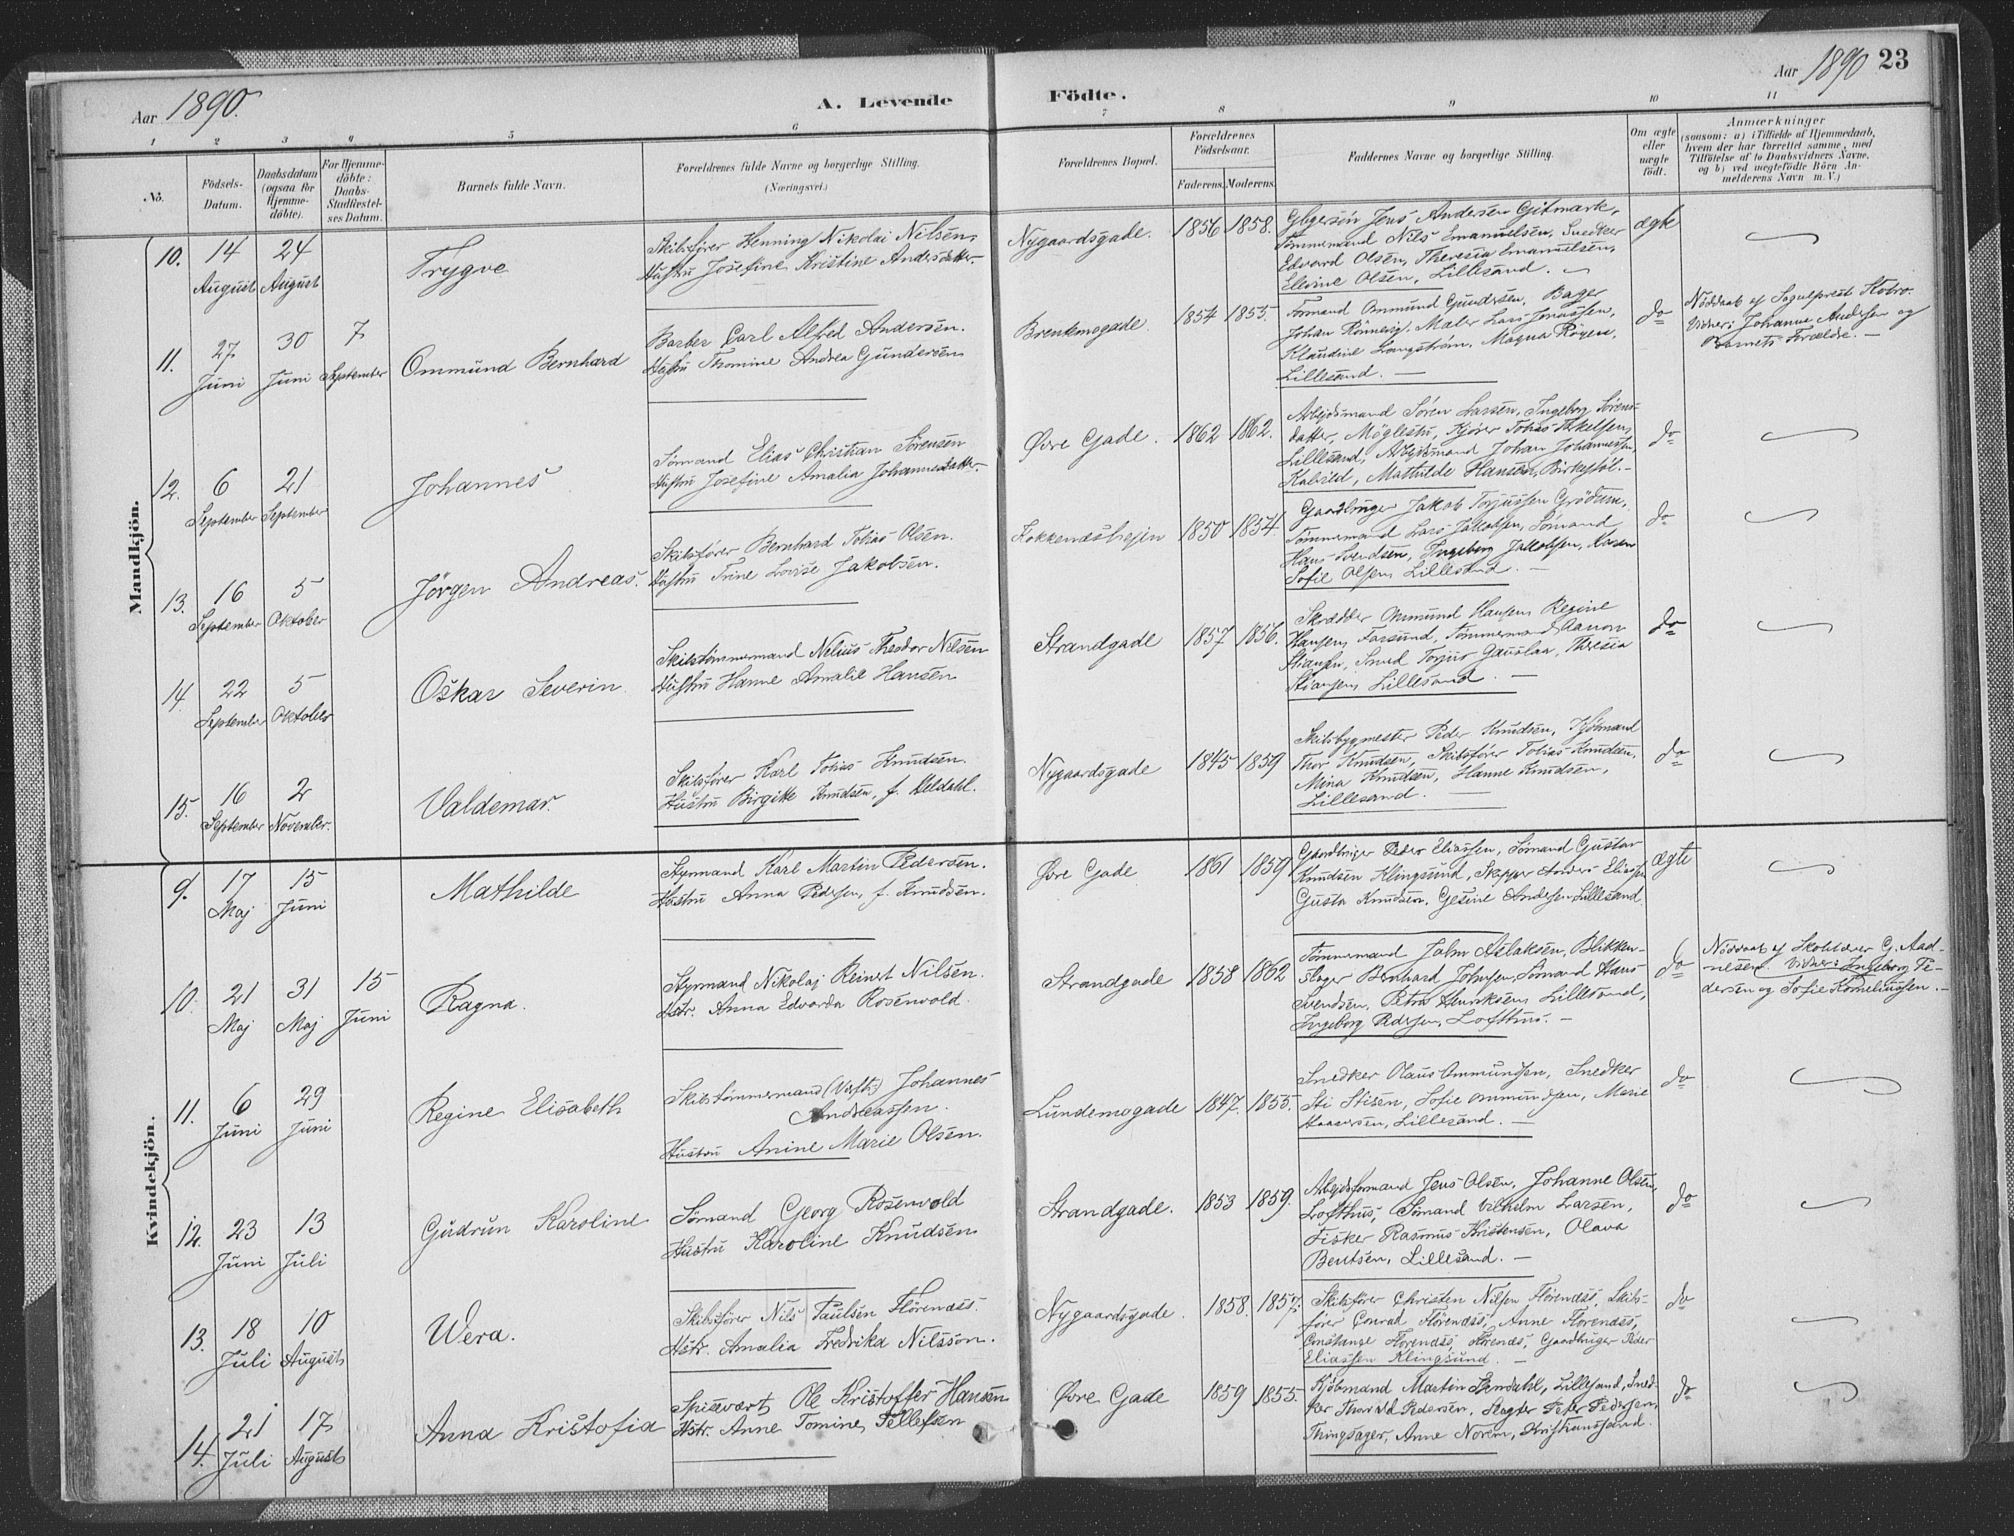 Aar 1890.
A. Levende Födte.
Aar 1890 23
1 2 3 4 5 6 7 8 9 10 11
No.
Födsels-
Datum.
Daabsdatum
(ogsaa for
Hjemme-
döbte).
For Hjemme-
döbte:
Daabs-
Stadfæstel-
ses Datum.
Barnets fulde Navn.
Forældrenes fulde Navne og borgerlige Stilling.
(Næringsvei.)
Forældrenes Bopæl.
Forældrenes
Födselsaar.
Faderens. Moderens.
Faddernes Navne og borgerlige Stilling.
Om ægte
eller
uægte
födt.
Anmærkninger
(saasom: a) i Tilfælde af Hjemmedaab,
hvem der har forrettet samme, med
Tilföielse af to Daabsvidners Navne,
og b) ved uægtefödte Börn An-
melderens Navn m. V.)
Mandkjön.
10. 14 August 24 August
Trygve
Skibsfører Henning Nikolai Nilsen,
Hustru Josefine Kristine Andersdatter.
Nygaardsgade. 1856 1858.
Jens Andersen Gitmark,
Tømmermand Nils Emanuelsen, Snedker
Edvard Olsen, Theresia Emanuelsen,
Elevine Olsen, Lillesand.
ægte
11. 27 Juni 30 Juni 7 September
Ommund Bernhard
Barber Carl Alfred Andersen.
Hustru Thomine Andrea Gundersen
Brentemogade. 1854 1855.
Formand Ommund Gundersen, Bager
Johan Rönnevig, Maler Lars Jonassen,
Klaudine Langström, Magna Rögen,
Lillesand.
do
Nöddaab af Sogneprest Hvbro.
Vidner: Johanne Andersen og
Barnets Forældre.
12. 6 September 21 September
Johannes
Sømand Elias Christian Sörensen
Hustru Josefine Amalia Johannesdatter.
Øvre Gade. 1862 1862.
Arbejdsmand Sören Larsen, Ingeborg Sörens-
datter, Möglestu, Kjører Tobias Terkelsen,
Lillesand, Arbejdsmand Johan Johannessen,
Kabreld, Mathilde Hansen, Birkesföl.
do
13. 16 September 5 Oktober
Jörgen Andreas.
Skibsfører Bernhard Tobias Olsen.
Hustru Trine Lovise Jakobsen.
Kokkenæsheien 1850 1854.
Gaardbruger Jakob Torjussen Grödum,
Tømmermand Lars Jakobsen, Sømand
Hans Svendsen, Ingeborg Jakobsen, Karen
Sofie Olsen, Lillesand.
do
14. 22 September 5 Oktober
Oskar Severin
Skibstømmermand Nelius Theodor Nilsen
Hustru Hanne Amalie Hansen
Strandgade 1857 1856.
Skrædder Ommund Hansen, Regine
Hansen, Farsund, Tømmermand Aanon
Stiansen, Smed Torjus Gauslaa, Theresia
Stiansen, Lillesand.
do
15. 16 September 2 November.
Valdemar.
Skibsfører Karl Tobias Knudsen.
Hustru Birgitte Knudsen, f. Heldahl.
Nygaardsgade 1845 1859
Skibsbygmester Peder Knudsen, Kjöbmand
Thor Knudsen, Skibsfører Tobias Knudsen,
Mina Knudsen, Hanne Knudsen,
Lillesand.
do
Kvindekjön.
9. 17 Maj 15 Juni
Mathilde
Styrmand Karl Martin Pedersen.
Hustru Anna Pedersen, f. Knudsen.
Øvre Gade 1861 1859
Gaardbruger Peder Eliassen, Sømand Gustav
Knudsen Klingsund, Skipper Anders Eliassen,
Gusta Knudsen, Gesine Andersen, Lillesand.
ægte
10. 21 Maj 31 Maj 15 Juni
Ragna.
Styrmand Nikolaj Reinert Nilsen.
Hstr. Anna Edvarda Rosenvold.
Strandgade 1858 1862
Tømmermand John Aslaksen, Blikken-
slager Bernhard Johnsen, Sømand Hans
Svendsen, Petra Henriksen, Lillesand,
Ingeborg Pedersen, Lofthus.
do
Nöddaab af Skolelærer G. Aad-
nesen. Vidner: Ingeborg Pe-
dersen og Sofie Kornelıussen.
11. 6 Juni 29 Juni
Regine Elisabeth
Skibstömmermand (Værft:) Johannes
Andreassen.
Hustru Anine Marie Olsen.
Lundemogade 1847. 1855.
Snedker Olaus Ommundsen, Snedker
Sti Stisen, Sofie Ommundsen, Marie
Haaversen, Lillesand.
do
12. 23 Juni 13 Juli
Gudrun Karoline
Sømand Georg Rosenvold
Hustru Karoline Knudsen
Strandgade. 1853 1859.
Arbejdsformand Jens Olsen, Johanne Olsen,
Lofthus, Sømand Vilhelm Larsen,
Fisker Rasmus Kristensen, Olava
Bentsen, Lillesand.
do
13. 18 Juli 10 August
Wera.
Skibsfører Nils Paulsen Flörenæss.
Hstr. Amalia Fredrika Nilsson.
Nygaardsgade. 1858. 1857.
Skibsfører Christen Nilsen Flörenæss, Skibs-
fører Conrad Flörenæss, Anne Flörenæs,
Constanse Flörenæss, Flörenæs, Gaardbruger Peder
Eliassen Klingsund.
do
14. 21 Juli 17 August
Anna Kristofia
Spisevært Ole Kristoffer Hansen
Hstr. Anne Tomine Tellefsen
Øvre Gade 1859 1855.
Kjöbmand Martin Grendahl, Lillesand, Sned-
ker Thorvald Pedersen, Slagter Peter Pedersen,
Thingsager, Anne Norem, Kristianssand.
do